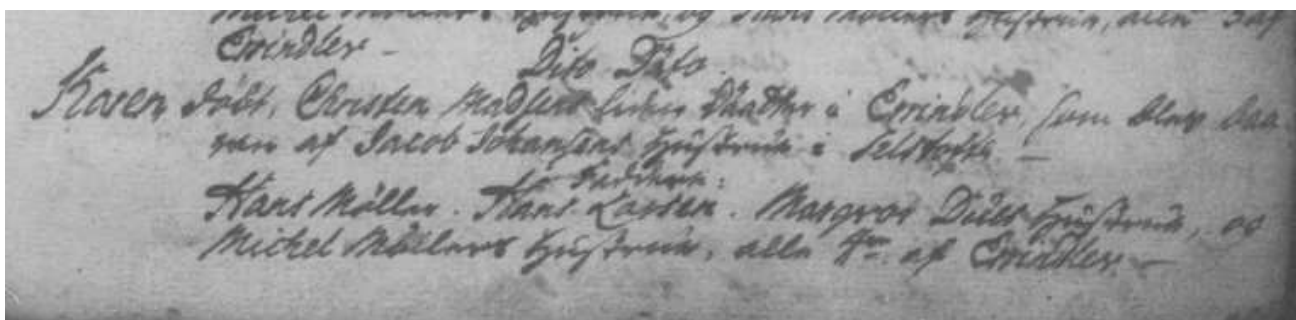 Michel Möllers Hustrue, og Möllers Hustrue, alle 3 af
Emindler –
Dito Dito.
Karen döbt, Christen Madsens liden Daatter i Emindler, som blev baa
ren af Jacob Johansens Hustrue i Selstofte –
Faddere:
Hans Möller. Hans Larsen. Margros Dües Hustrue, og
Michel Möllers Hustrue, alle 4re af Emindler. –